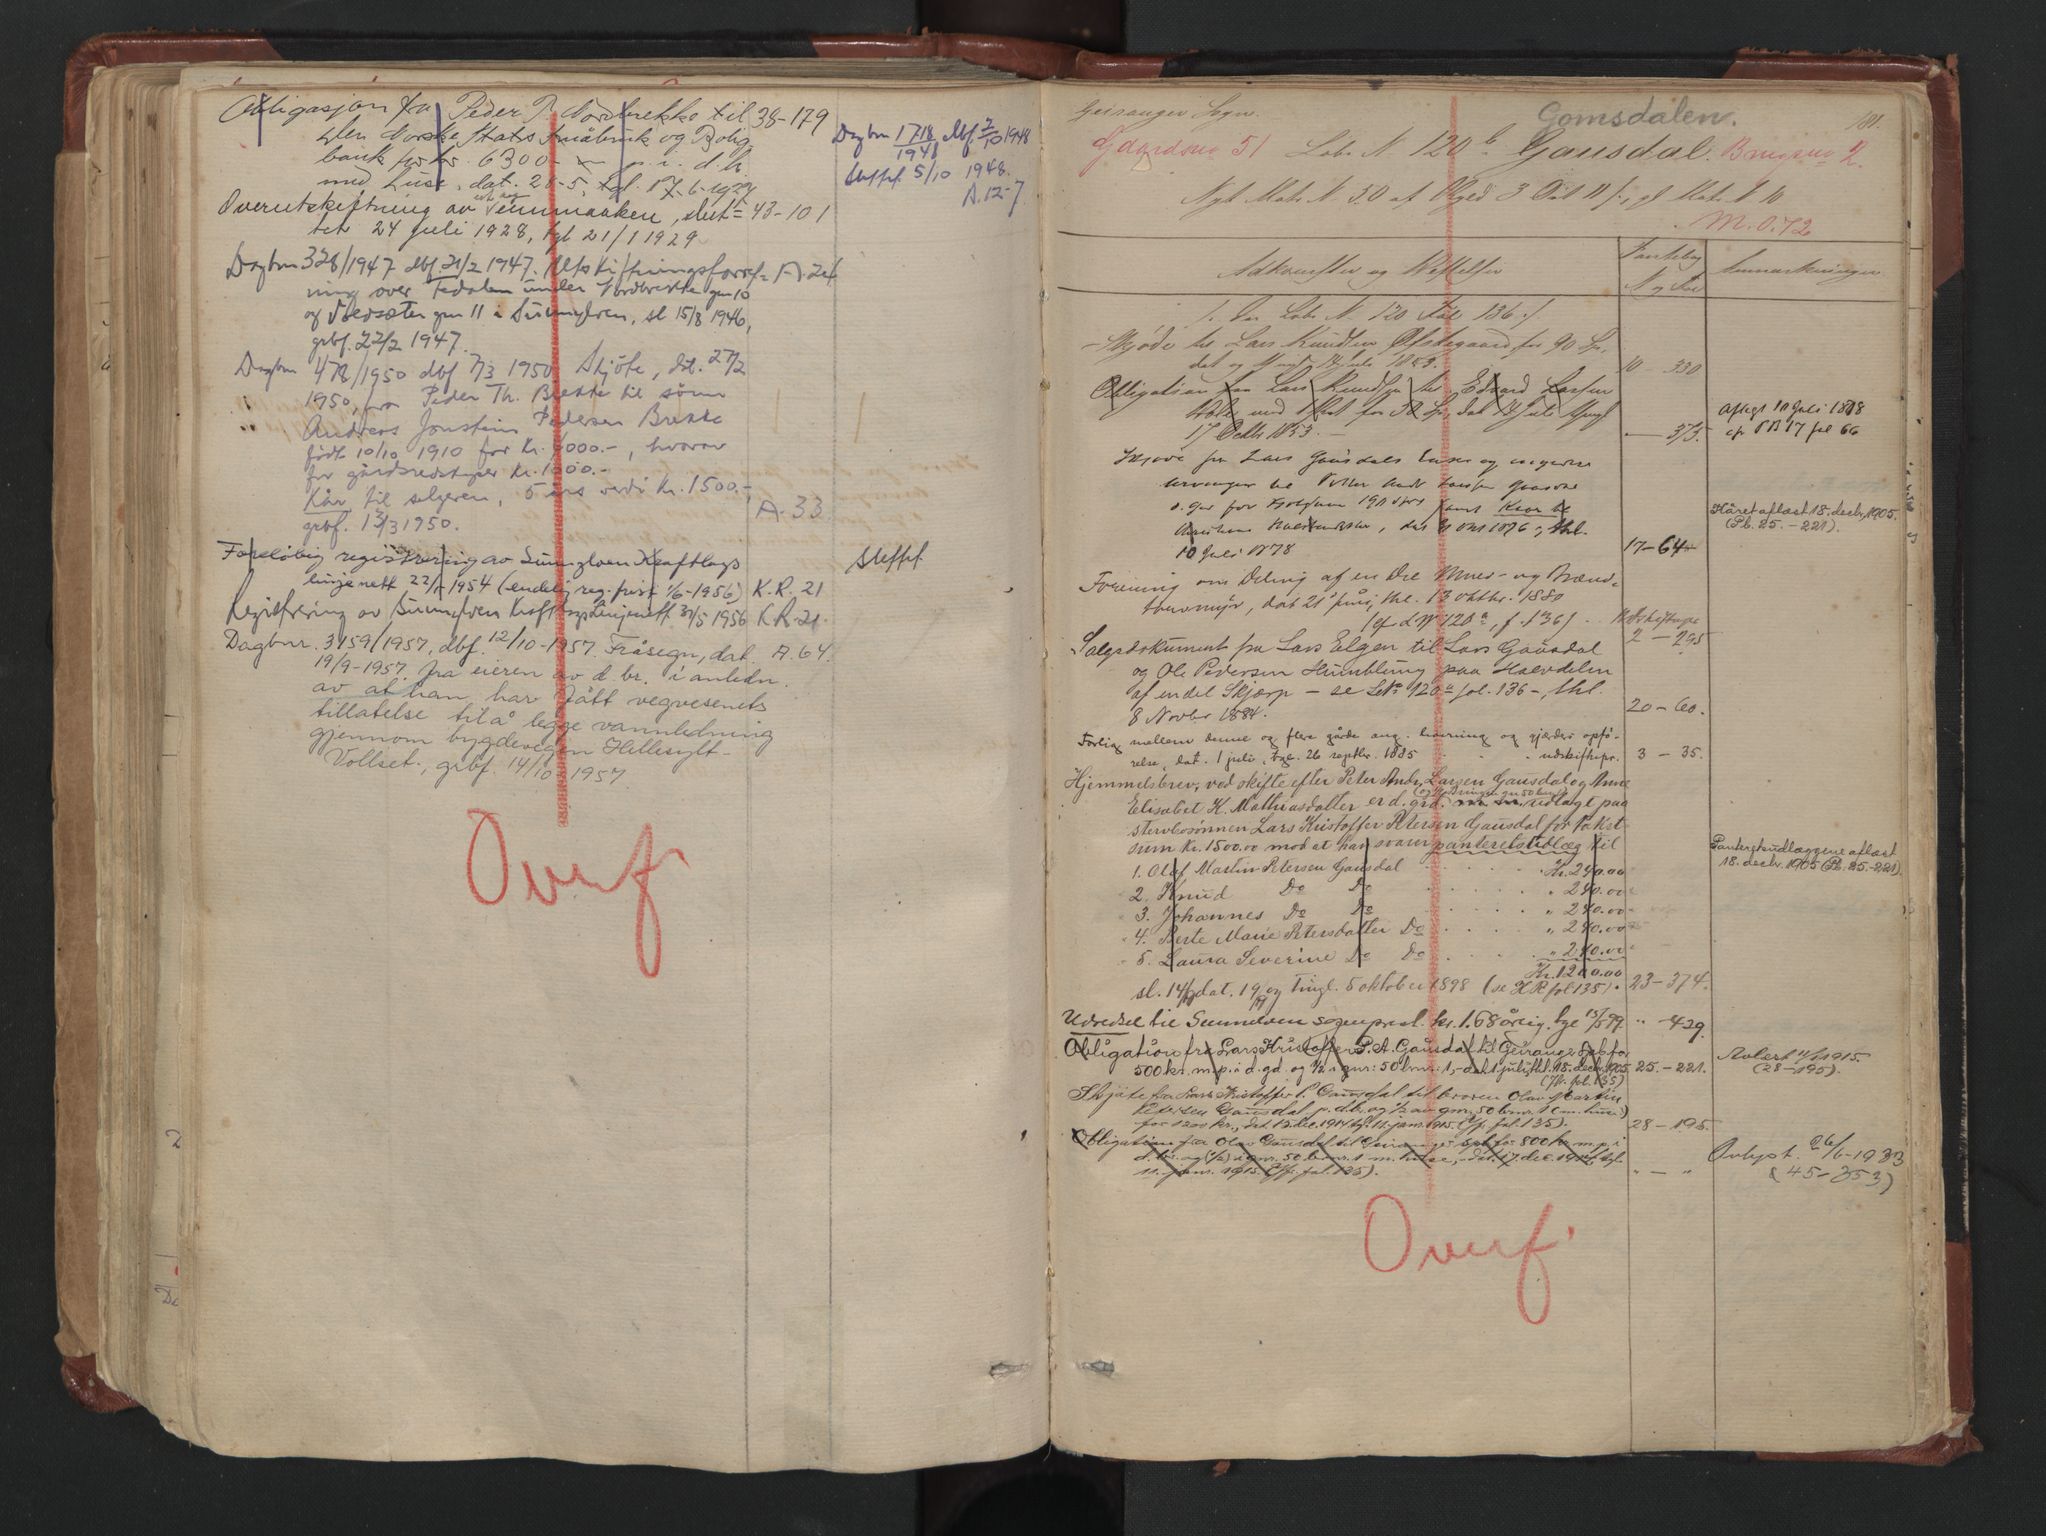 Obligasjon fra Peder P. Nordbrekke til 38-179
Den Norske Stats Småbruk og Bolig-
bank for kr. 6300.- p.i. d.b.
med huse, dat. 28-5, tgl. 17-6-1927
Dagbnr 1718/1948 dbf. 2/10 1948
Slettet 5/10 1948.
A.12-7
Overutskiftning av slut= 43-101
tet 24 juli 1928, tgl 21/1 1929
Dagbnr 328/1947 dbf. 21/2 1947. Utskiftningsforret= A.24
ning over under Nordbrekke gnr 10
og gnr 11 i Sunnylven, sl 15/8 1946,
grbf. 22/2 1947.
Dagbnr 478/1950 dbf 7/3 1950 Skjöte, dat. 27/2
1950, fra Peder Th. Brekke til sönn
Andreas Jonstein Pedersen Brekke
född 10/10 1910 for kr. 6000.-, hvorav
for gårdsredskaper kr. 1500.-
Kår til selgeren, 5 års verdi kr. 1500.-,
grbf. 13/3 1950.
A.33.
Foreløbig registrering av Sunnylven Kraftlags
linjenett 22/1 1954 (endelig reg. frist 1/6-1956) K.R. 21
Slettet
Registrering av Sunnylven Kraftlags linjenett 31/5 1956 K.R. 21.
Dagbnr. 3159/1957, dbf. 12/10-1957. Fråsegn, dat. A.64.
19/9-1957. fra eieren av d. br. i anledn.
av at han har fått vegvesenets
tillatelse til å legge vannledning
gjennom bygdevegen Hellesylt-
Vollset., grbf. 14/10-1957
Overf
Geiranger Sogn.
Gomsdalen.
181.
Gaardsno 51 Løbe N 120 b Gausdal. Brugsno 2.
Nyt Matr. N 50 af Skyld 3 Dal
M. 0.72
Adkomster og Heftelser
Pantebog
N og Fol
Anmærkninger
1. Se Løbe N. 120 Fol 136.
- Skjøde til Lars Knudsen for 90 Sp,
dat og Juli 1853.
10 - 330
Obligation fra Lars Knudsen til Edvard Larsen
med 1 Pant for Sp, dat Juli
17 Octbr 1853.
— 373.
Aflyst 10 Juli 1878
cfr PB 17 fol 66
Skjøde fra Lars Gausdals Enke og
arvinger til Petter Andr Larsen Gausdal
d. gr for samt Kaar til
dat Okt 1876, thl.
10 Juli 1878
17-64
Kåret aflæst 18. decbr. 1905.
(Pb. 25.-221).
Forening om Deling af en Del Mures- og Brænd-
torvmyr, dat 21 juni, thl. 13 oktbr. 1880
(cf L N 120 a, f. 136).
2 - 295
Salgsdokument fra Lars Elgen til Lars Gausdal
og Ole Pedersen Humblung paa Halvdelen
af en del Skjærp - se LN 120 a fol. 136 -, thl.
8 Novbr 1884.
20 - 60.
Forlig mellem denne og flere gårde ang. havning og gjærders opfø-
relse, dat. 1 juli, tgl. 26 septbr. 1885 " " udskiftspr.
3 - 35.
Hjemmelsbrev, ved skifte efter Peter Andr. Larsen Gausdal og Anne
Elisabet K. Mathiasdatter er d. grd. udlagt paa
stervbosønnen Lars Kristoffer Petersen Gausdal for Takst-
sum kr. 1500.00 mod at han svarer panteretsudlæg til
1. Olaf Martin Petersen Gausdal Kr. 240.00
2. Knud Do Do " 240.00
3. Johannes Do Do " 240.00
4. Berte Marie Petersdatter Do " 240.00
5. Laura Severine Do Do " 240.00
Kr. 1200.00
sl. 14/9 dat. 19/9 og Tingl. 5 oktober 1898 (se HR fol 135).
23-374.
Panteretsudlæggene aflæst
18. decbr. 1905 (Pb. 25-221).
Udredsel til Sunnelven sogneprest. kr. 1.68 årlig. tgl 15/5 99.
" - 429.
Obligation fra Lars Kristoffer P. A. Gausdal til Geiranger Spb for
500 kr. m. p. i d. gd. og 1/2 i gnr: 50 bnr: 1, - dat 1 juli, thl. 18. decbr. 1905.
(Jfr. fol. 135)
25.-221.
Avlæst 11/1 1915.
(28-195).
Skjøte fra Lars Kristoffer P. Gausdal til broren Olav Martin
Petersen Gausdal p. d. br. og 1/2 av gnr. 50 bnr. 1 (m. huse)
for 1200 kr., dat. 12 dec. 1914, tgl. 11. jan. 1915. (Jfr. fol. 135).
28-195.
Obligation fra Olav Gausdal til Geiranger spb for 800 kr m. p. i
d. br. og (1/2) i gnr. 50 br.nr. 1 m. huse, dat. 17 dec. 1914, tgl.
11. jan. 1915. (Jfr. fol. 135).
" - "
Avlyst. 26/6-1933
(45-353)
Overf.